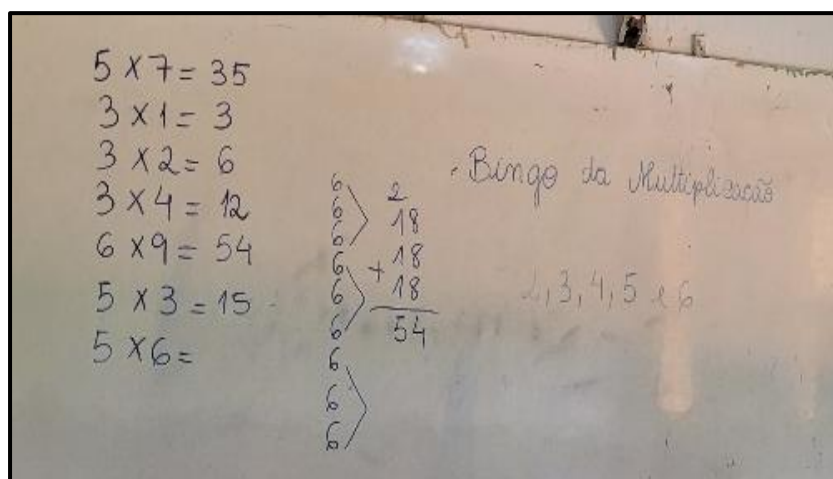 5 x 7 = 35
3 x 1 = 3
3 x 2 = 6
3 x 4 = 12
6 x 9 = 54
5 x 3 = 15
5 x 6 =
6
6
6
6
6
6
6
6
6
2
18
18
+ 18
54
Bingo da Multiplicação
2, 3, 4, 5 e 6